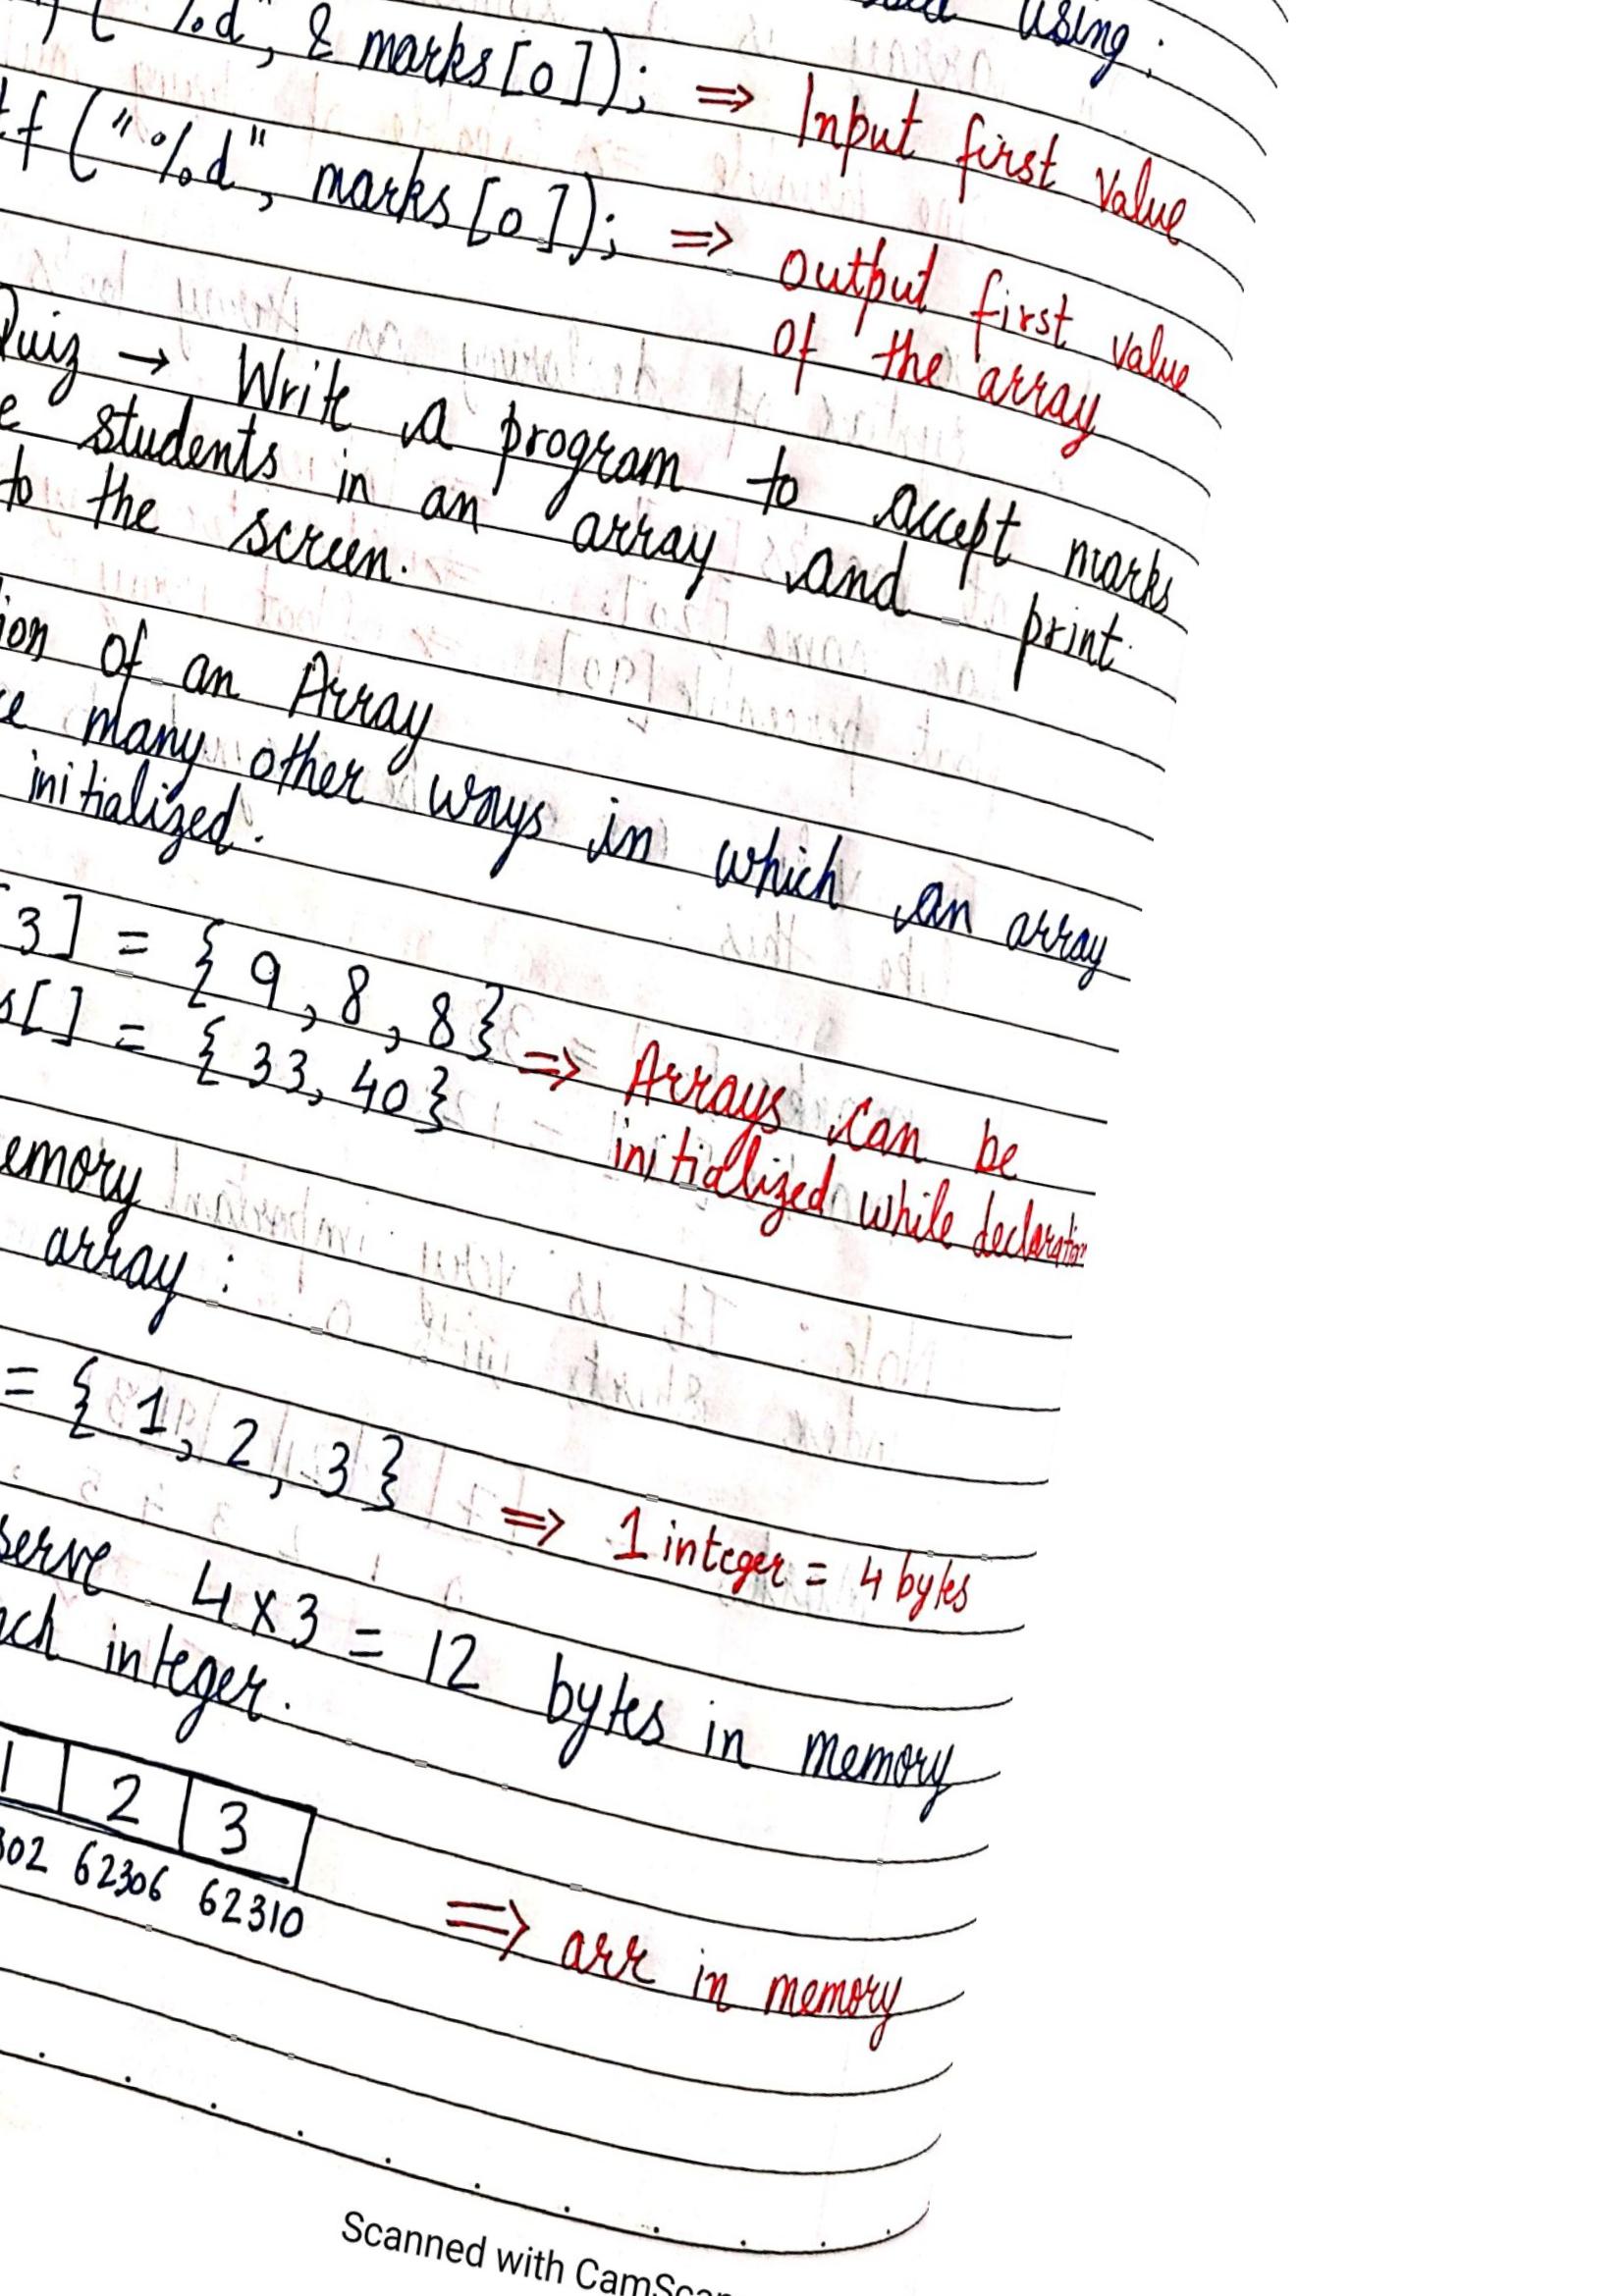 using:
("%d", & marks[0]); => Input first value
f ("%d", marks[0]); => output first value
of the array
Quiz → Write a program to accept marks
students in an array and print
to the screen.
ion of an Array
many other ways in which an array
initialized.
[3] = { 9, 8, 8}
s[] = { 33, 40} => Arrays can be
initialized while declaration
emory
array :
= { 1, 2, 3} => 1 integer = 4 bytes
serve 4x3 = 12 bytes in memory
ach integer.
1 2 3
302 62306 62310 => arr in memory
Scanned with CamScan